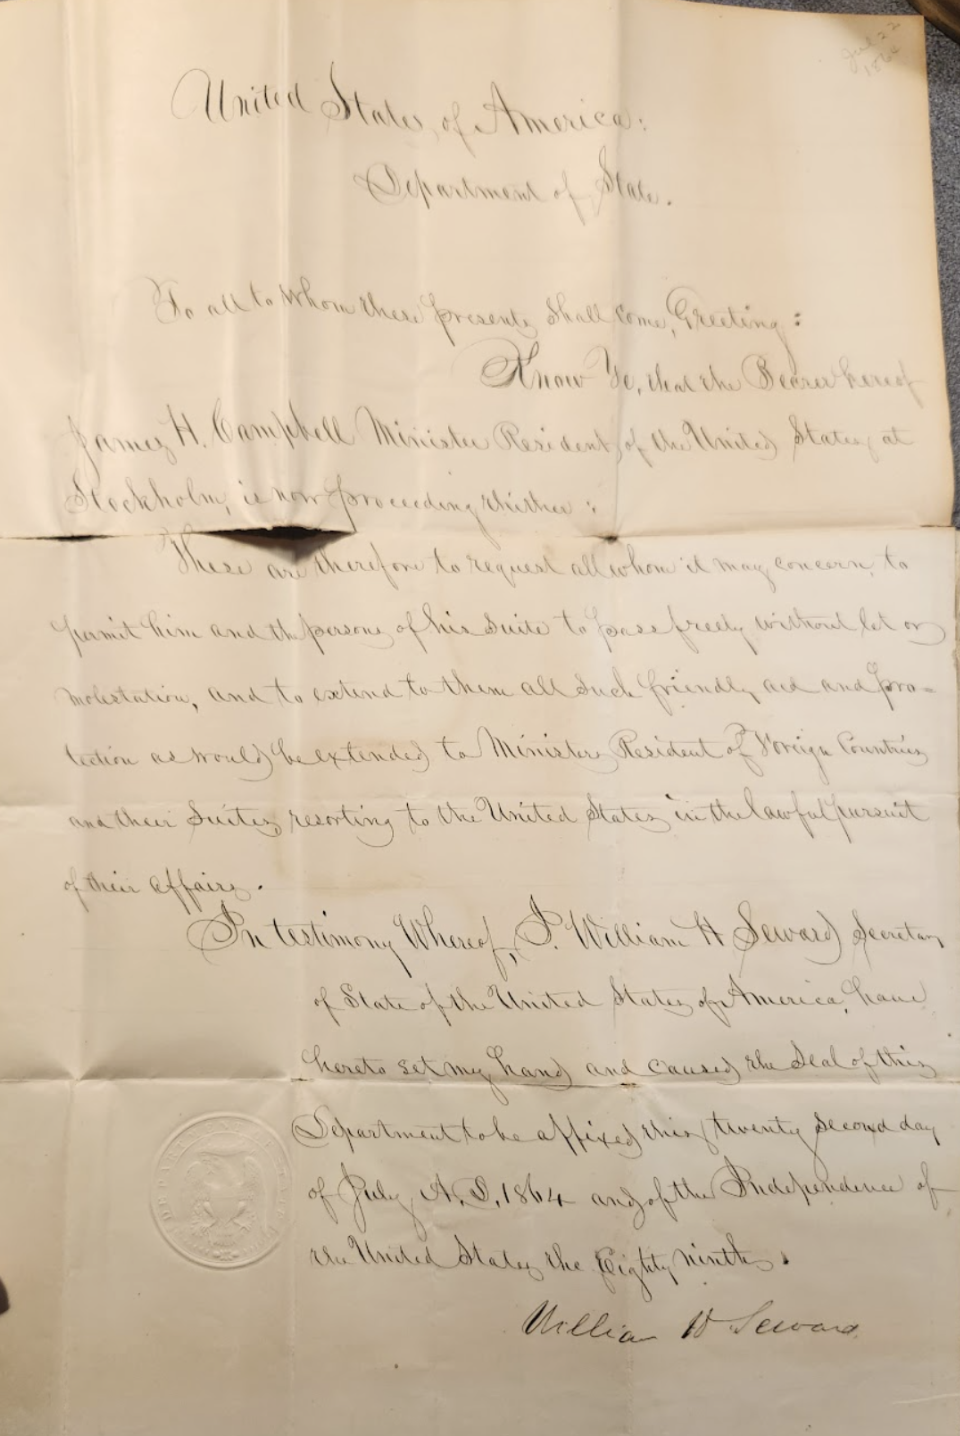 Jul 22
United States of America:
Department of State.
To all to Whom these presents shall come, Greeting:
Know Ye, that the Bearer hereof
James H. Campbell Minister Resident, of the United States, at
Stockholm, is now proceeding thither:
These are therefore to request all whom it may concern, to
permit him and the persons of his Suite to pass freely without let or
molestation, and to extend to them all such friendly aid and pro=
tection as would be extended to Ministers Resident of Foreign Countries
and their Suites resorting to the United States in the lawful pursuit
of their affairs.
In testimony Whereof, I. William H Seward Secretary
of State of the United States of America, have
hereto set my hand and caused the Seal of this
Department to be affixed this twenty second day
of July A.D. 1864 and of the Independence of
the United States the Eighty ninth.
William H Seward